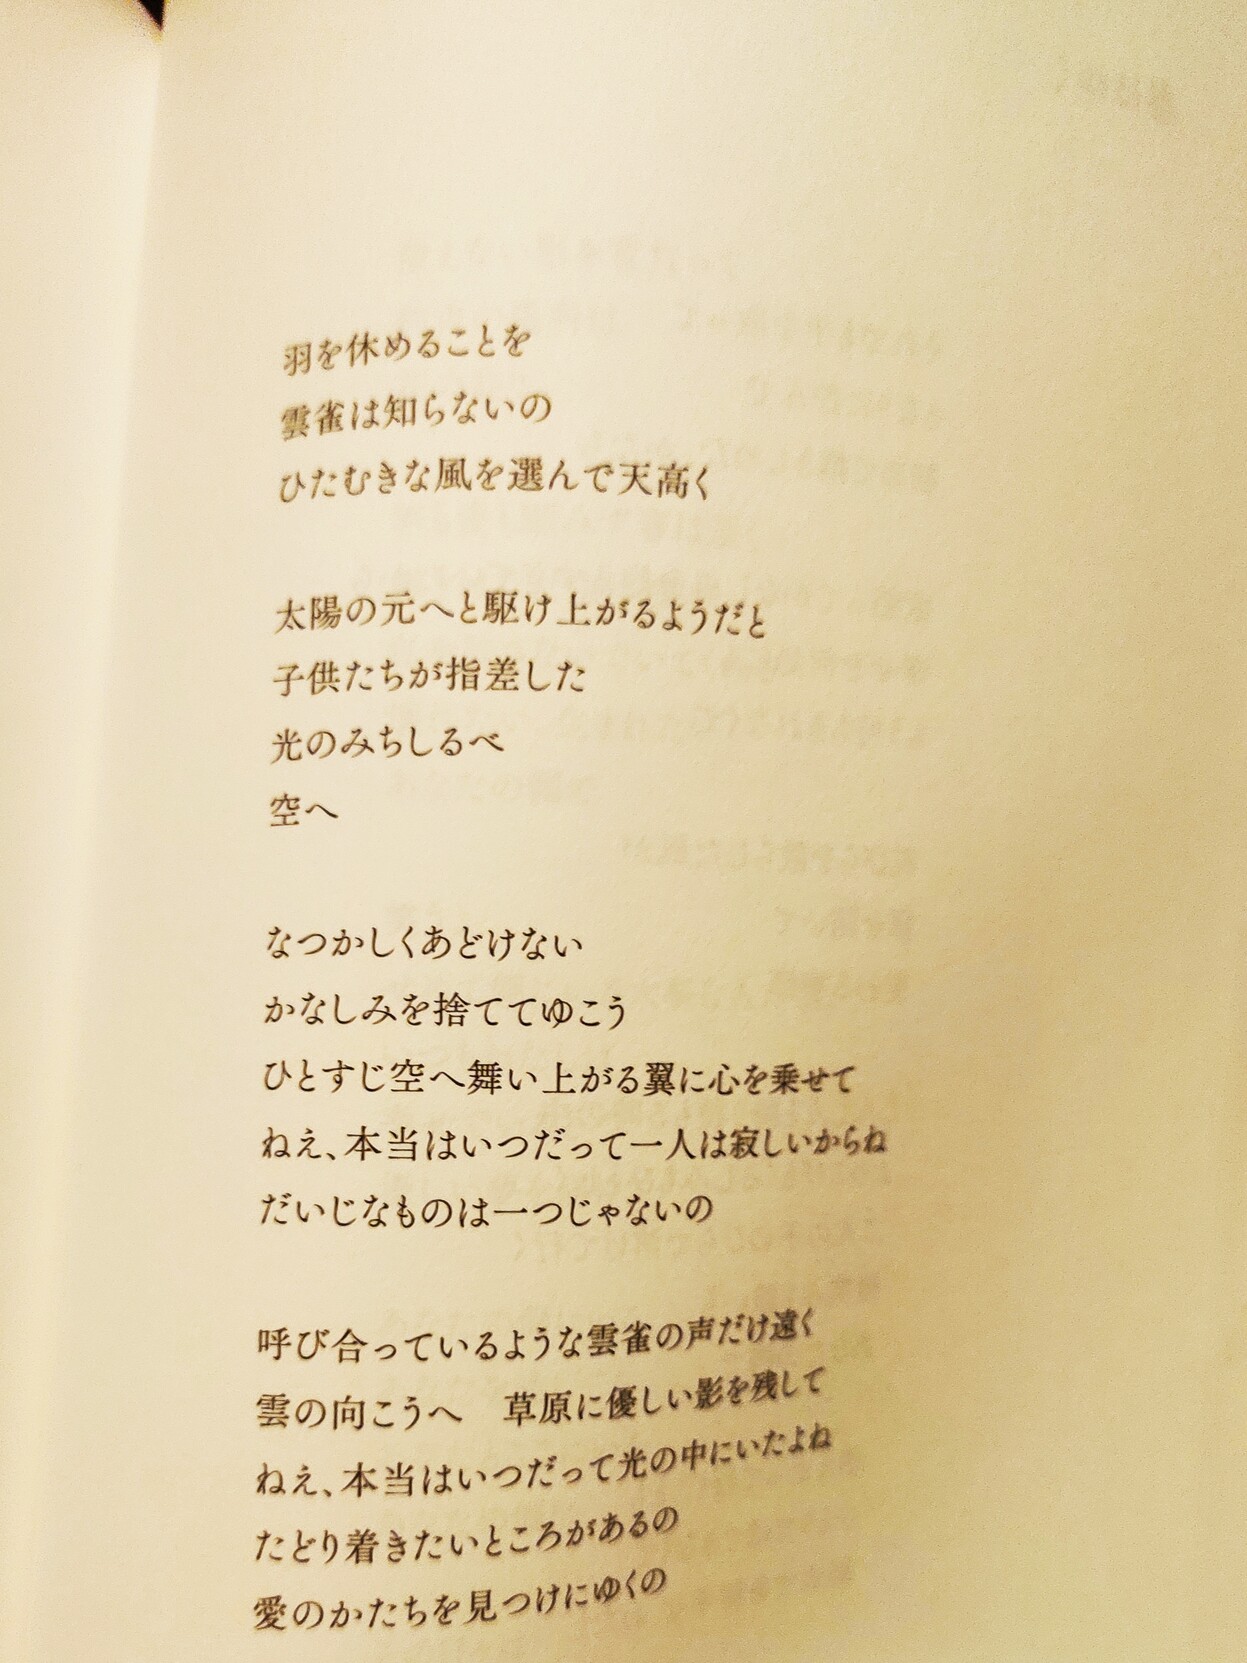 羽を休めることを
雲雀は知らないの
ひたむきな風を選んで天高く
太陽の元へと駆け上がるようだと
子供たちが指差した
光のみちしるべ
空へ
なつかしくあどけない
かなしみを捨ててゆこう
ひとすじ空へ舞い上がる翼に心を乗せて
ねえ、本当はいつだって一人は寂しいからね
だいじなものは一つじゃないの
呼び合っているような雲雀の声だけ遠く
雲の向こうへ　草原に優しい影を残して
ねえ、本当はいつだって光の中にいたよね
たどり着きたいところがあるの
愛のかたちを見つけにゆくの